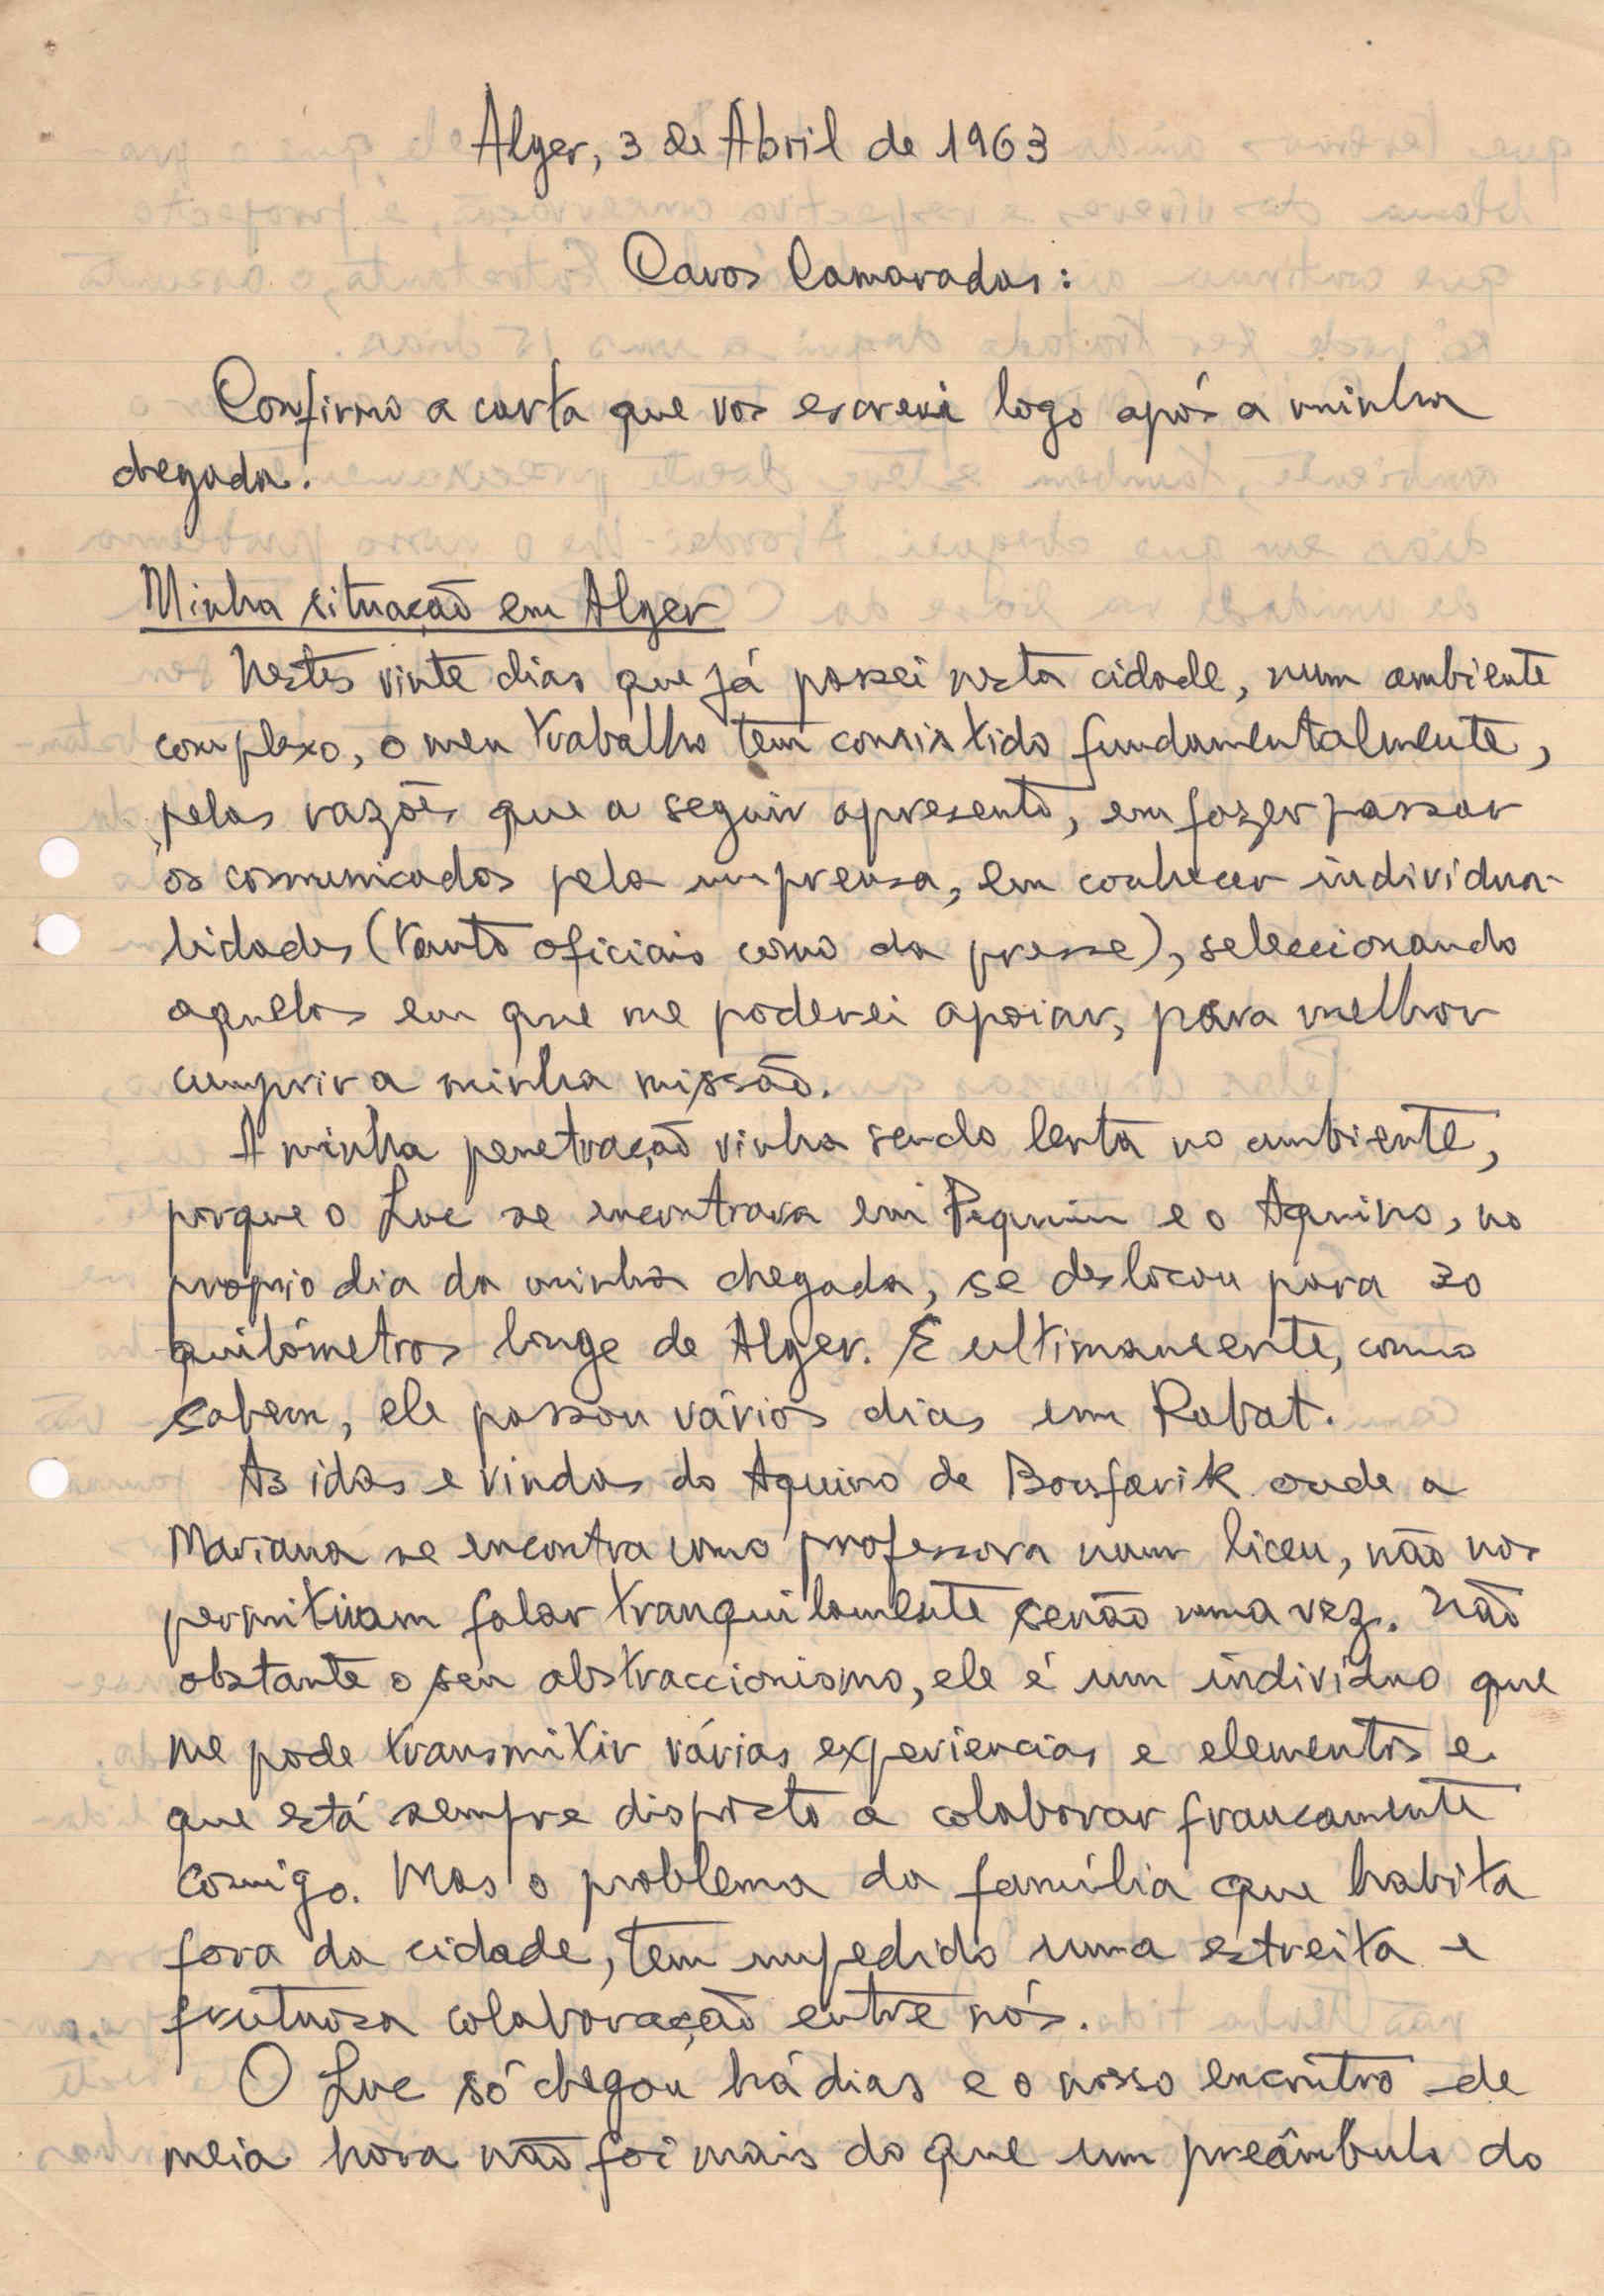 Alger, 3 de Abril de 1963
Caros Camaradas:
Confirmo a carta que vos escrevi logo após a minha
chegada.
Minha situação em Alger
Nestes vinte dias que já passei nesta cidade, num ambiente
complexo, o meu trabalho tem consistido fundamentalmente,
pelas razões que a seguir apresento, em fazer passar
os comunicados pela imprensa, em conhecer individua-
lidades (tanto oficiais como da presse), seleccionando
aquelas em que me poderei apoiar, para melhor
cumprir a minha missão.
A minha penetração vinha sendo lenta no ambiente,
porque o Luc se encontrava em Pequim e o Aquino, no
proprio dia da minha chegada, se deslocou para 30
quilómetros longe de Alger. E ultimamente, como
sabem, ele passou vários dias em Rabat.
As idas e vindas do Aquino de Boufarik onde a
Mariana se encontra como professora num liceu, não nos
permitiram falar tranquilamente senão uma vez. Não
obstante o seu abstraccionismo, ele é um indivíduo que
me pode transmitir várias experiencias e elementos e
que está sempre disposto a colaborar francamente
comigo. Mas o problema da família que habita
fora da cidade, tem impedido uma estreita e
frutuosa colaboração entre nós.
O Luc só chegou há dias e o nosso encontro de
meia hora não foi mais do que um preâmbulo do